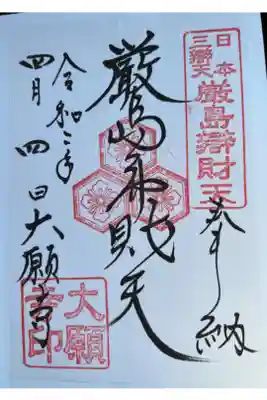 日本
三辯天
厳島辯財天
奉納
厳島弁財天
令和二年
四月四日大願寺
大願
寺印